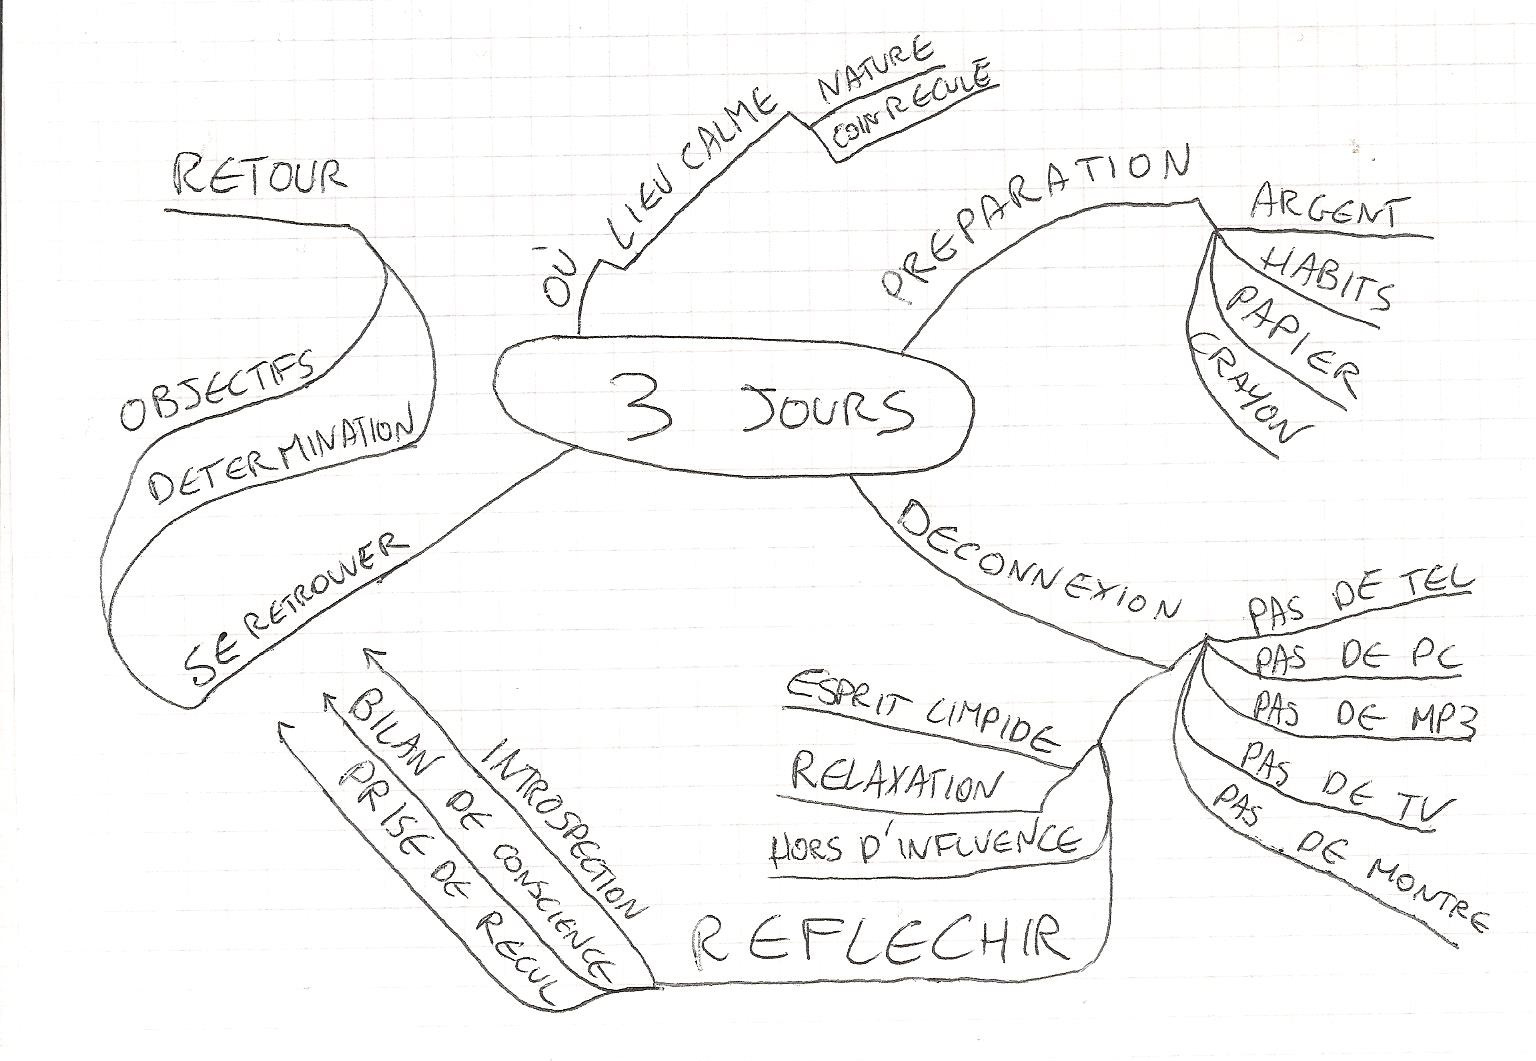 3 JOURS
OÙ
LIEU CALME
NATURE
COIN RECULE
PREPARATION
ARGENT
HABITS
PAPIER
CRAYON
DECONNEXION
PAS DE TEL
PAS DE PC
PAS DE MP3
PAS DE TV
PAS DE MONTRE
ESPRIT LIMPIDE
RELAXATION
HORS D'INFLUENCE
REFLECHIR
INTROSPECTION
BILAN DE CONSCIENCE
PRISE DE RECUL
SE RETROUVER
DETERMINATION
OBJECTIFS
RETOUR